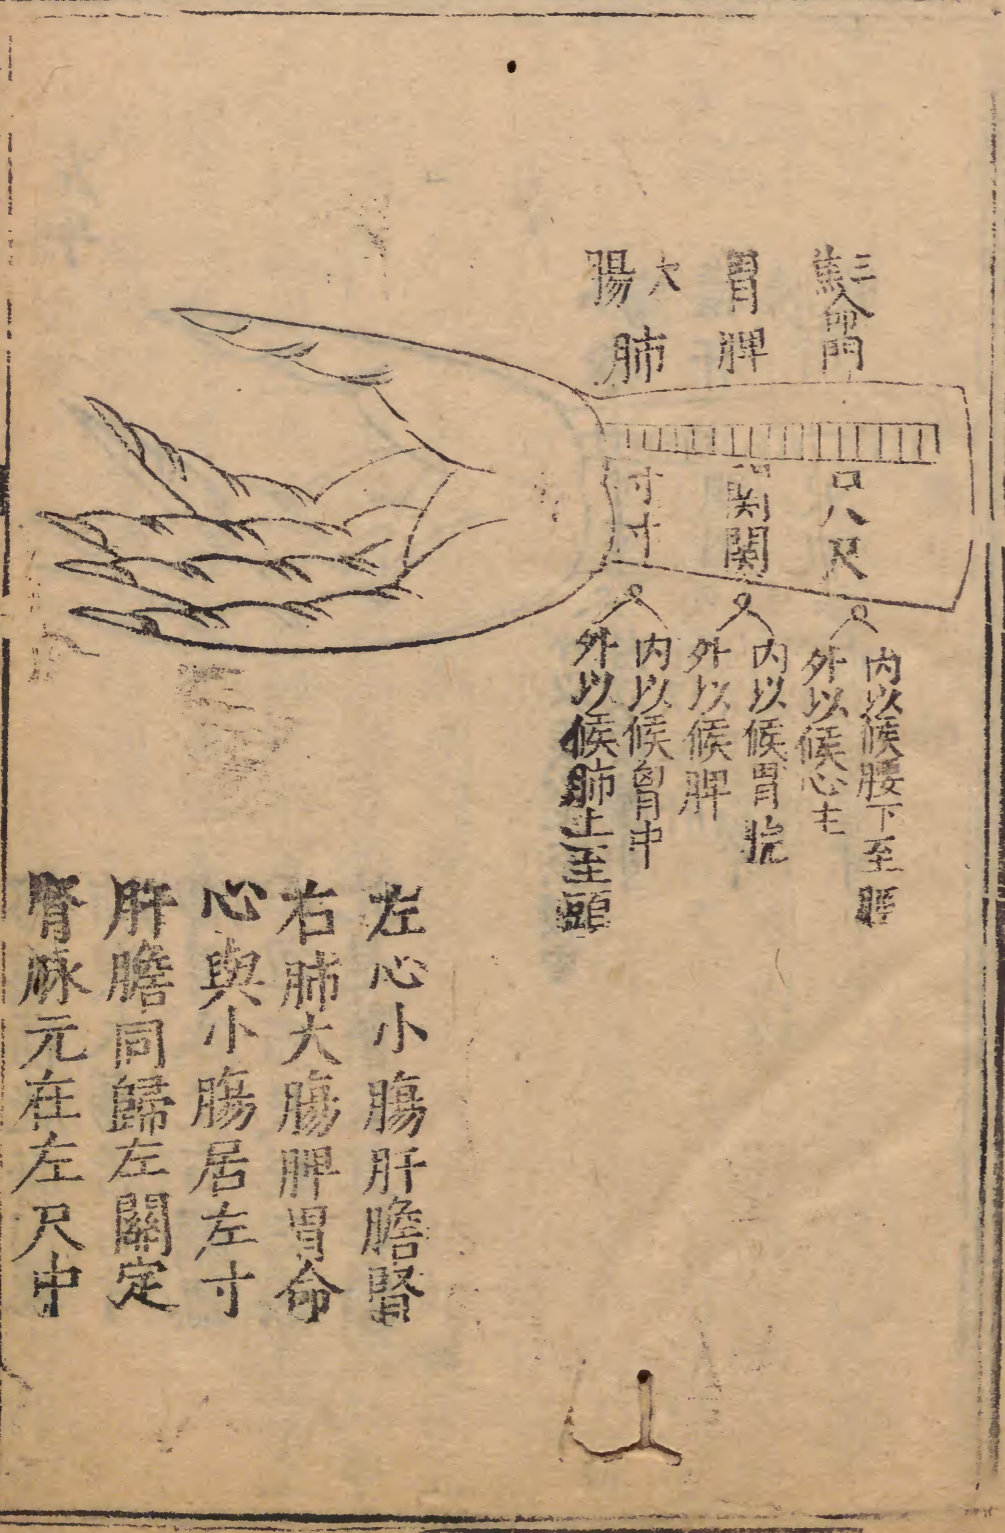 三焦命門
胃脾
大腸肺
尺尺
関関
寸寸
内以候腰下至
外以候心主
内以候胃脘
外以候脾
内以候胷中
外以候肺上至頭
左心小腸肝膽腎
右肺大腸脾胃命
心與小腸居左寸
肝膽同歸左關定
腎脉元在左尺中